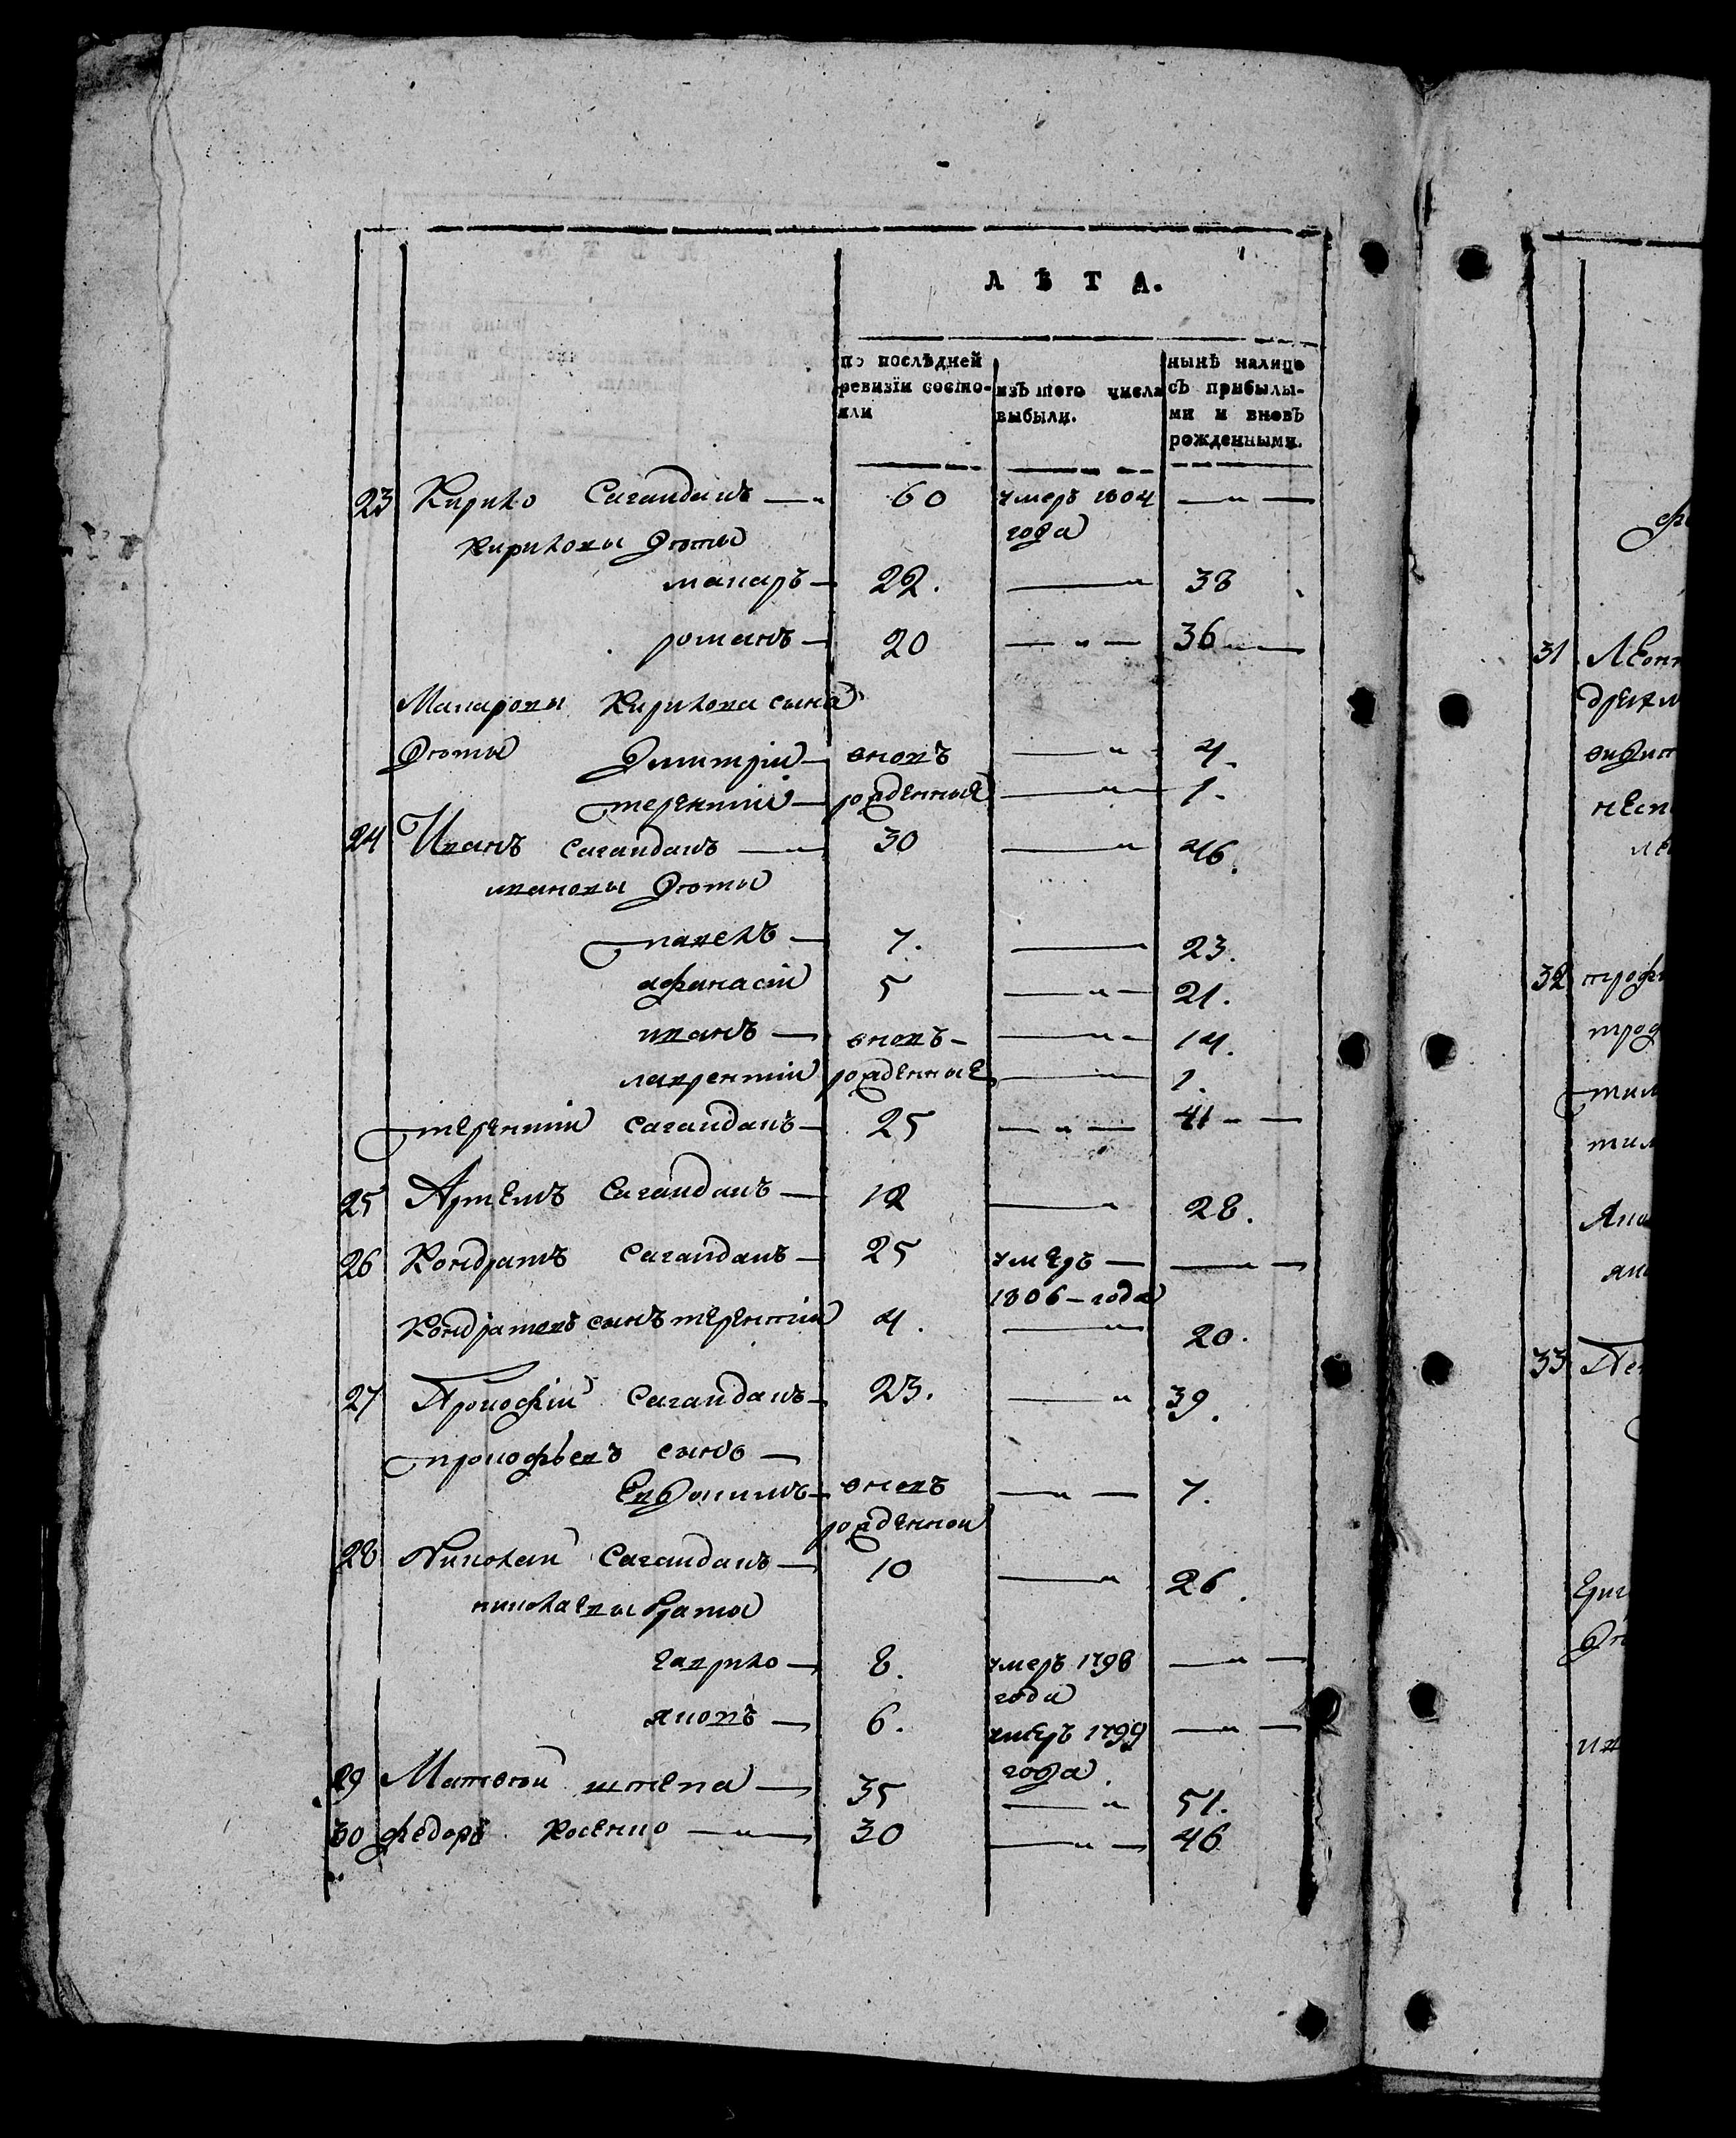 ЛѢТА.
по послѣдней ревизіи состояли
изъ того числа выбыли.
нынѣ налицо съ прибылыми и вновь рожденными.
23 Кирило Сагайдакъ — 60 умеръ 1804 года —
Кириловы дѣти
макаръ — 22. — 38
романъ — 20 — 36 —
Макаровы Кирилова сына
дѣти Дмитрій — вновь — 4.
терентій — рожденные — 1.
24 Иванъ Сагайдакъ — 30 — 46.
ивановы дѣти
павелъ — 7. — 23.
афанасій 5 — 21.
иванъ — вновь — 14.
лаврентій рожденные — 1.
терентій сагайдакъ — 25 — 41 —
25 Артемъ Сагайдакъ — 12 — 28.
26 Кондратъ Сагайдакъ — 25 умеръ — 1806 — года —
Кондратовъ сынъ терентій 4. — 20.
27 Прокофій Сагайдакъ — 23. — 39.
прокофьевъ сынъ —
Евдокимъ — вновь рожденной — 7.
28 Николай Сагайдакъ — 10 — 26.
николаевы браты
гаврило — 8. умеръ 1798 года —
яковъ — 6. умеръ 1799 года. —
29 Матвѣй штепа — 35 — 51.
30 федоръ Косенко — 30 — 46
31
32
33